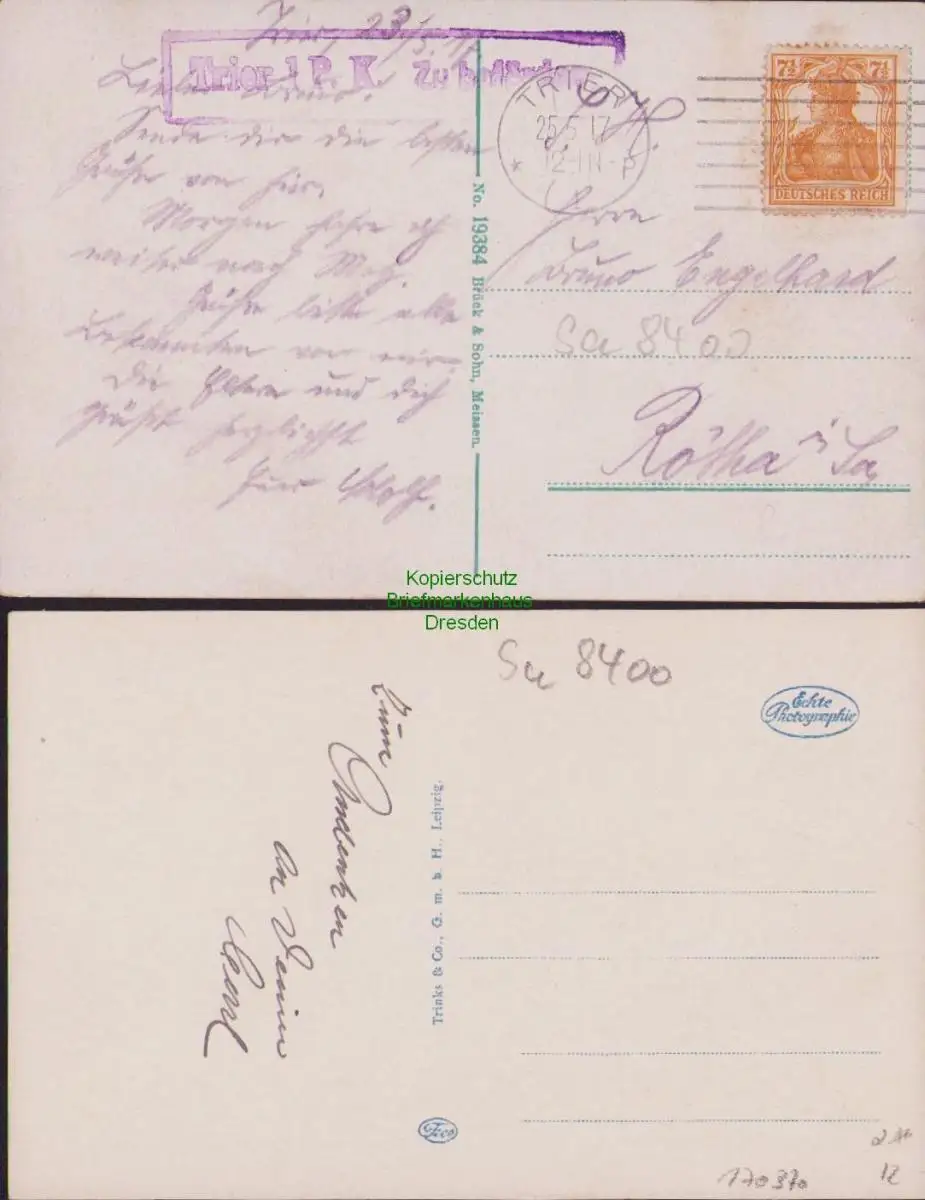 Trier, 23/5.17.
Trier 1 P. K. Zu befördern
Lieber Bruno.
Sende dir die besten
Grüße von hier.
Morgen fahre ich
weiter nach Metz.
Grüße bitte alle
Bekannten von mir.
Die Eltern und dich
grüßt herzlichst
Euer Adolf.
No. 19384 Brück & Sohn, Meissen.
TRIER
25.5.17
* 12-1N-P
7½ 7½
DEUTSCHES REICH
Herrn
Bruno Engelhard
Sa 8400
Rötha i Sa
Kopierschutz
Briefmarkenhaus
Dresden
Sa 8400
Echte
Photographie
Zum
Andenken
an Deine
Trinks & Co., G. m. b. H., Leipzig.
Teco
170370
12